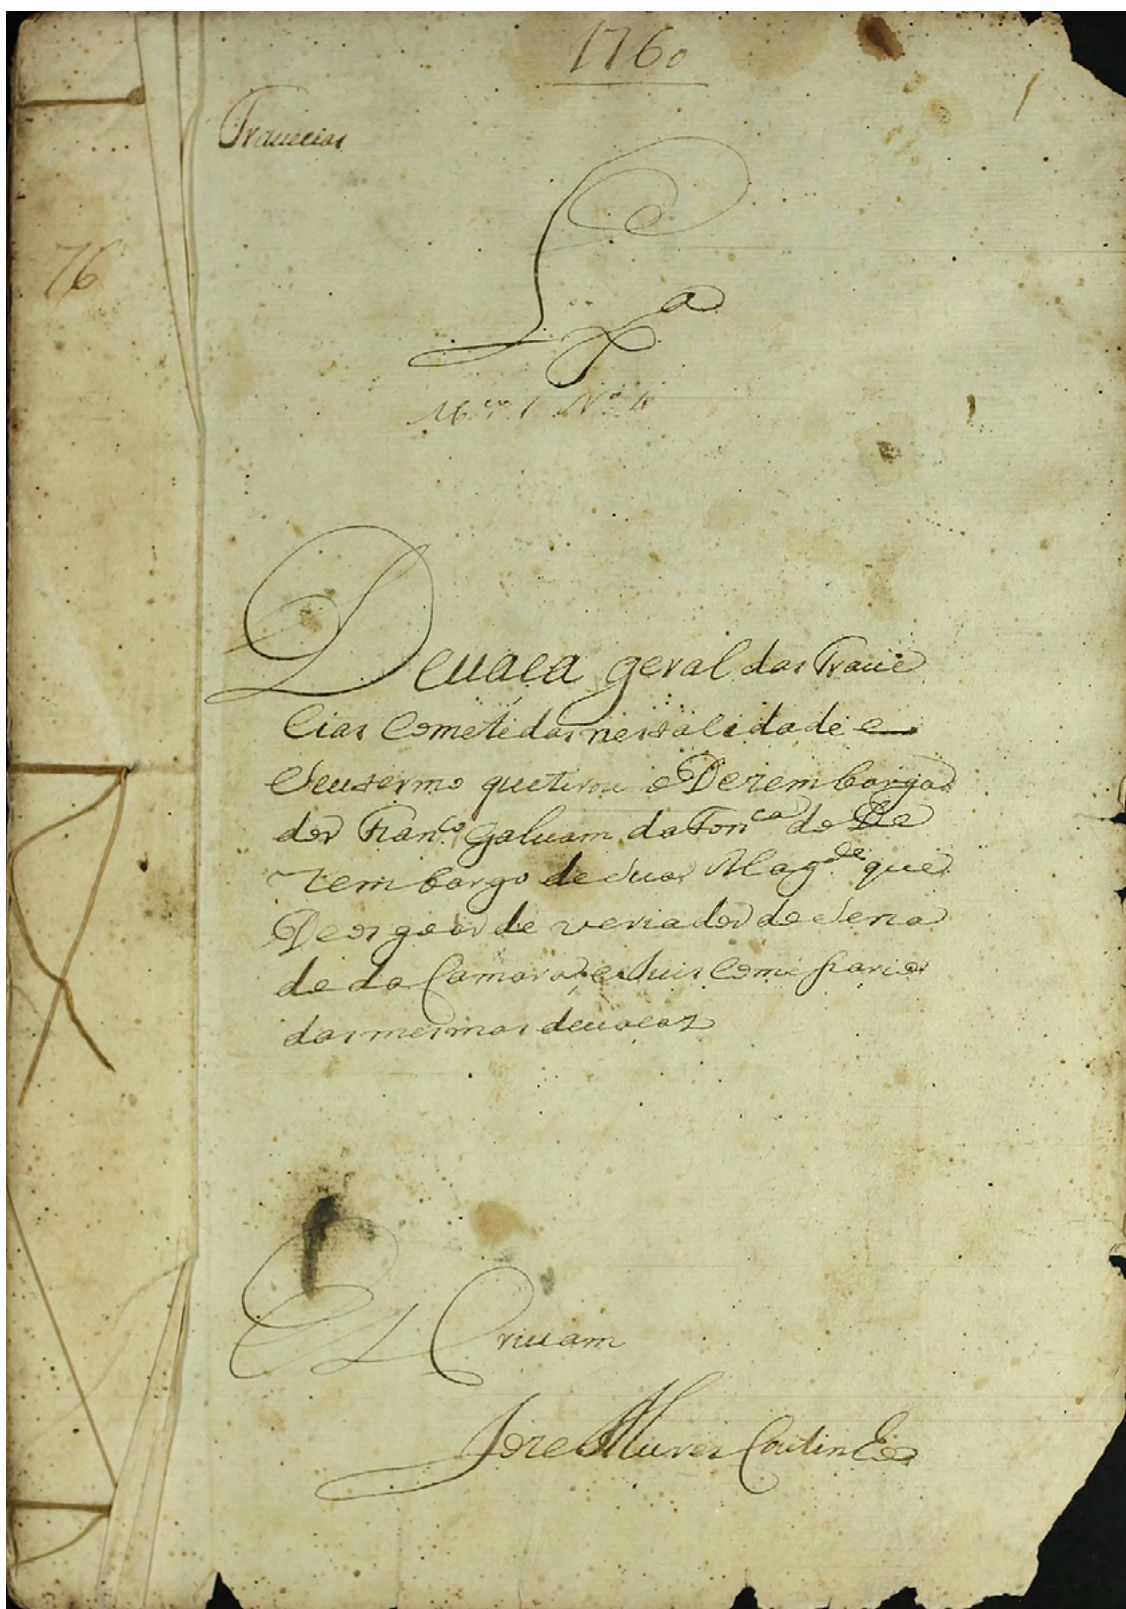 1760
1
Trauecias
76
L.a
M.co 1 N.o 4
Deuaca geral das Traue
cias Cometidas nesta Cidade e
Seu termo que tirou o Dezembarga
dor Fran.co Galuam da Fon.ca do De
zembargo de Sua Mag.de que
de veriador do Sena
do da Camara e Juis Comissario
das mesmas deuacas
EsCriuam
Joze Alures Coutinho